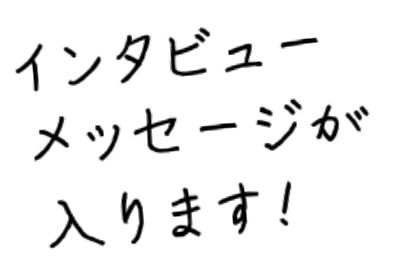 インタビュー
メッセージが
入ります!